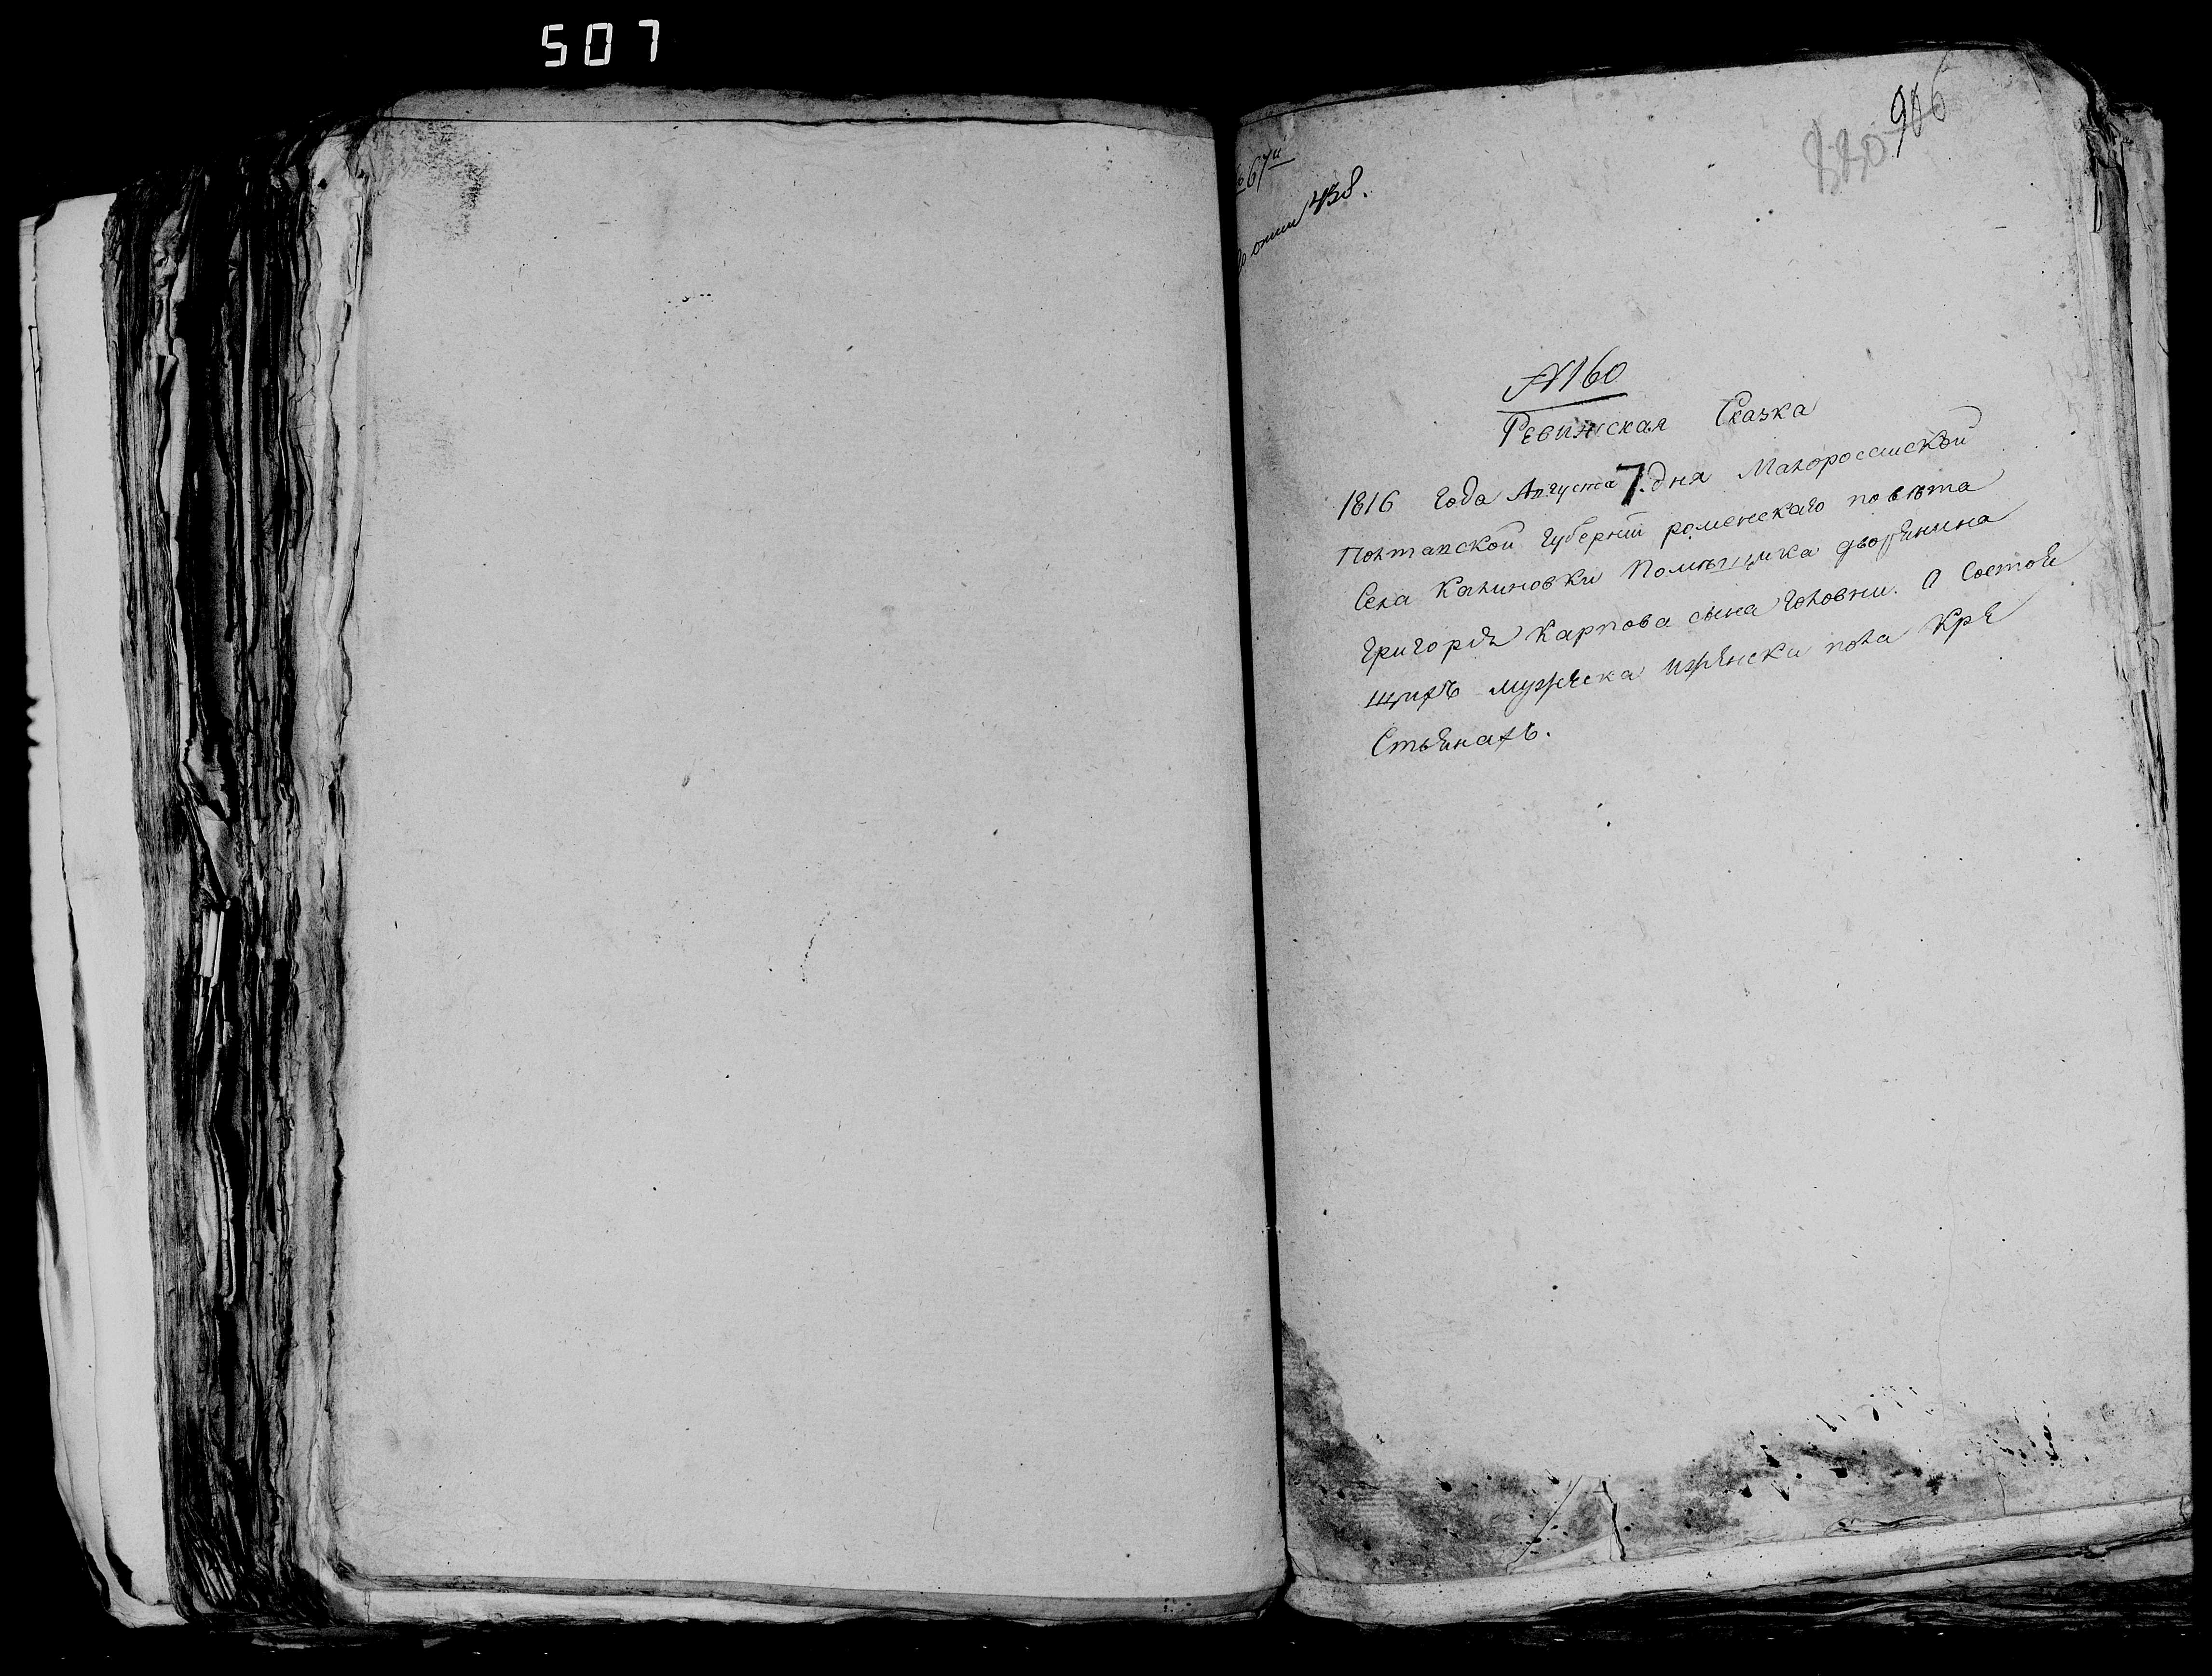 507
906
880
67й
описи 438.
№ 160
Ревижская Сказка
1816 года Августа 7 дня Малоросаиской
Полтавской губернии роменскаго повѣта
Села Калиновки Помѣщика дворянина
Григория Карпова сына Головни. О Состоя
щихъ мужеска ижѣнска пола Кре
Стьянахъ.